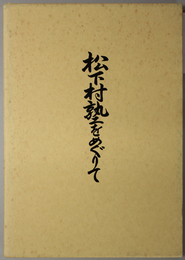 松下村塾をめぐりて